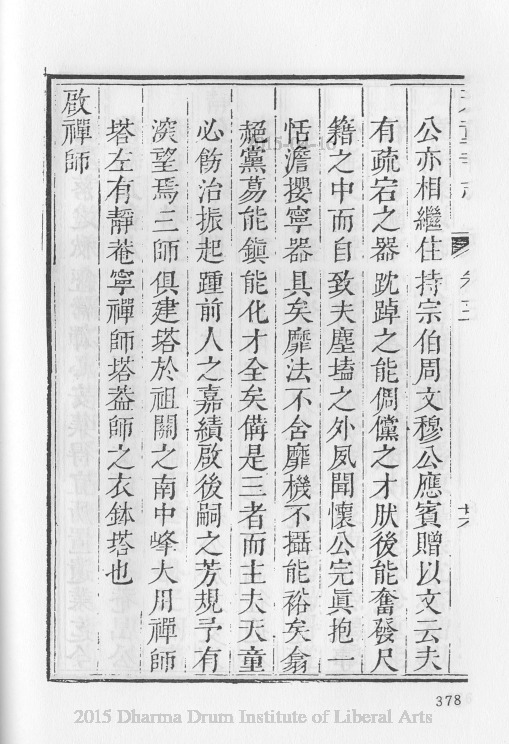 公亦相繼住持宗伯周文穆公應賓贈以文云夫
有疏宕之器踸踔之能倜儻之才肰後能奮發尺
籍之中而自致夫塵壒之外夙聞懷公完眞抱一
恬澹攖寧器具矣靡法不舍靡機不攝能裕矣翕
赩黨蒭能鎭能化才全矣備是三者而主夫天童
必飭治振起踵前人之嘉績啟後嗣之芳規予有
深望焉三師俱建塔於祖關之南中峰大用禪師
塔左有靜菴寧禪師塔葢師之衣鉢塔也
啟禪師
378
2015 Dharma Drum Institute of Liberal Arts